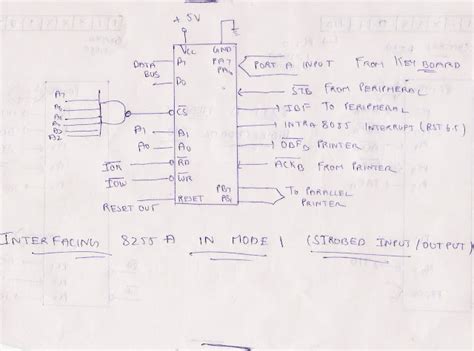 +5V
VCC GND
DATA BUS D7 PA7 PORT A INPUT FROM KEYBOARD
D0 PA0
A7 STB FROM PERIPHERAL
A6 CS IBF TO PERIPHERAL
A5 A1 A1 INTRA 8085 INTERRUPT (RST 6.5)
A4
A3
A2
A0 A0 OBFB PRINTER
IOR RD ACKB FROM PRINTER
IOW WR
RESET OUT RESET PB7 TO PARALLEL
PB0 PRINTER
INTERFACING 8255A IN MODE 1 (STROBED INPUT/OUTPUT)